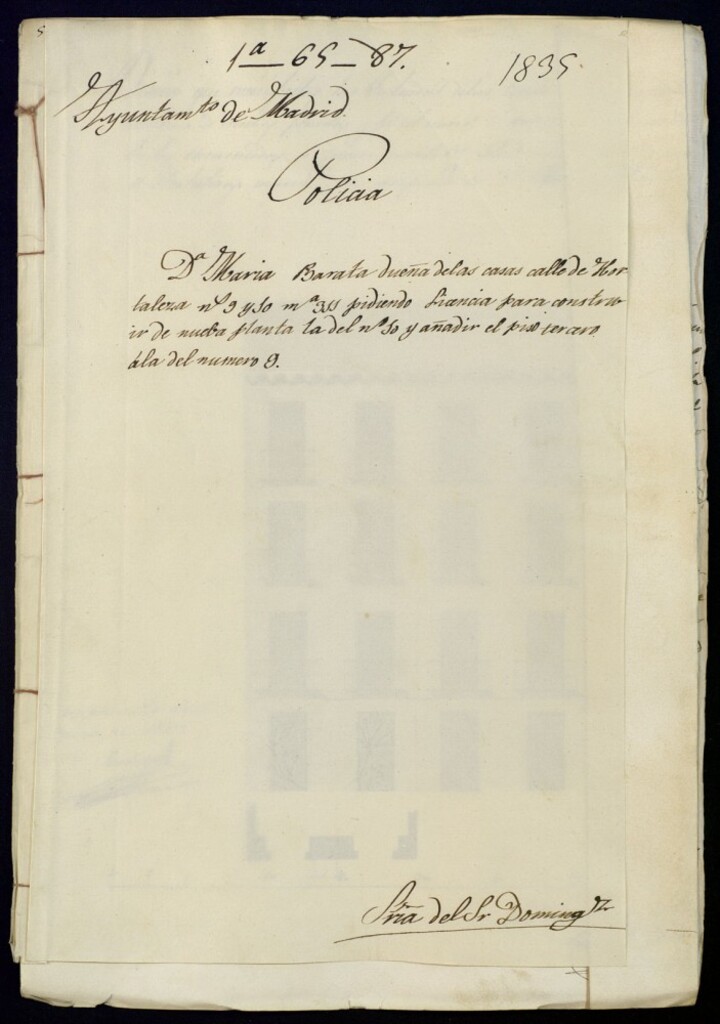 1ª — 65 — 87.
1835.
Ayuntamto de Madrid.
Policia
Dª Maria Barata dueña delas casas calle de Hor-
taleza nº 9 y 10 mª 311 pidiendo licencia para constru-
ir de nueba planta la del nº 10 y añadir el piso tercero
ála del numero 9.
Sria del Sr Domingz